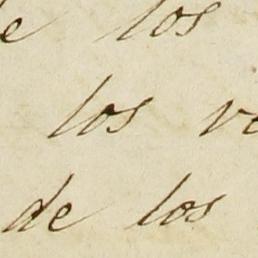 los
los
de los